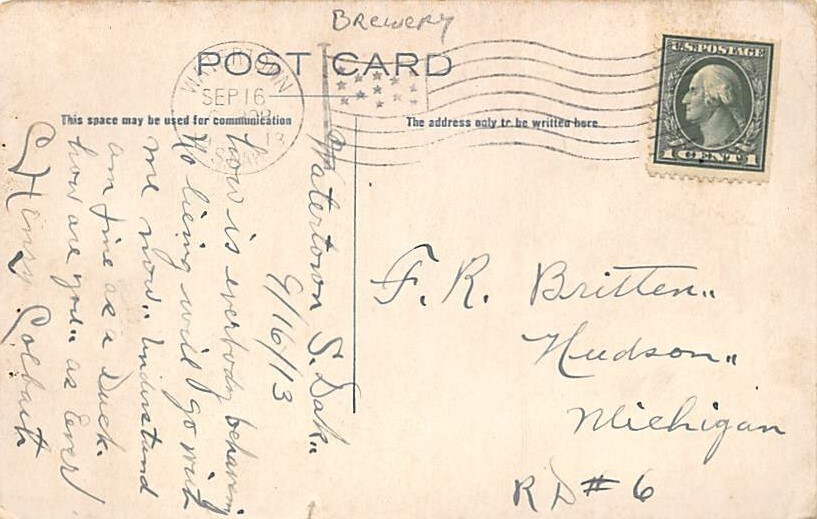 Brewery
POST CARD
WATERTOWN
SEP 16
13
U.S. POSTAGE
1 CENT 1
This space may be used for communication
The address only to be written here
Watertown S. Dak.
9/16/13
how is everbody behavin
No lieing will go with
me now. Understand
am fine as a Duck.
how are you as Ever
Henry
F. R. Britten
Hudson
Michigan
R D # 6